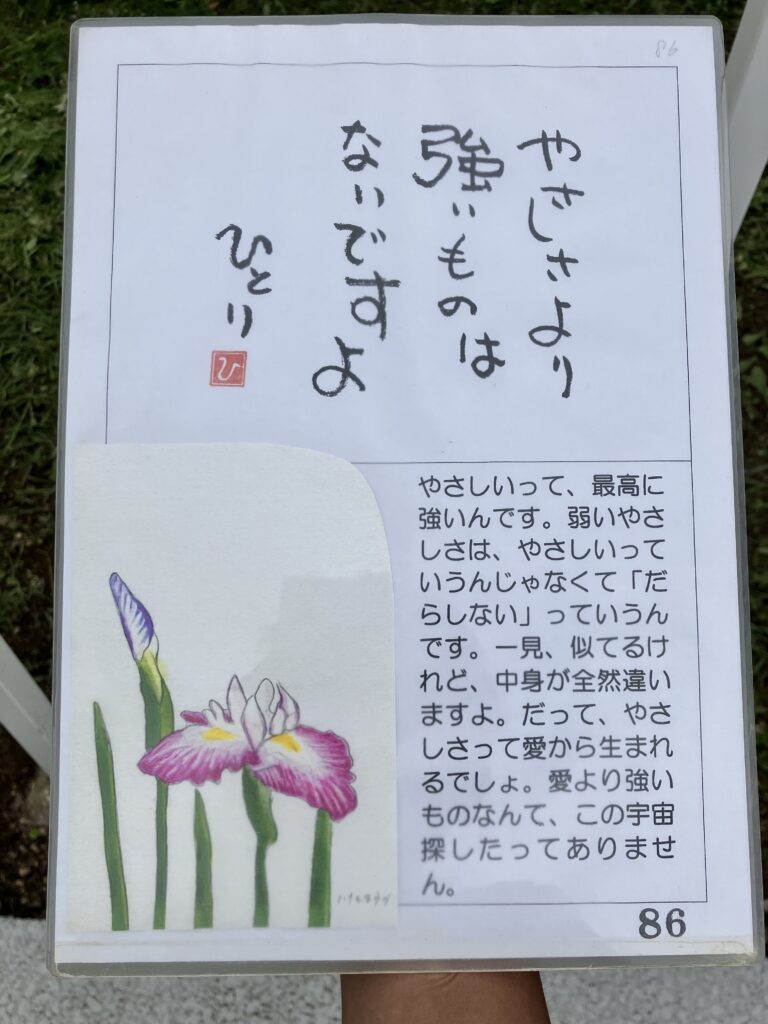 86
やさしさより
強いものは
ないですよ
ひとり
ひ
やさしいって、最高に
強いんです。弱いやさ
しさは、やさしいって
いうんじゃなくて「だ
らしない」っていうん
です。一見、似てるけ
れど、中身が全然違い
ますよ。だって、やさ
しさって愛から生まれ
るでしょ。愛より強い
ものなんて、この宇宙
探したってありませ
ん。
ハナショウブ
86